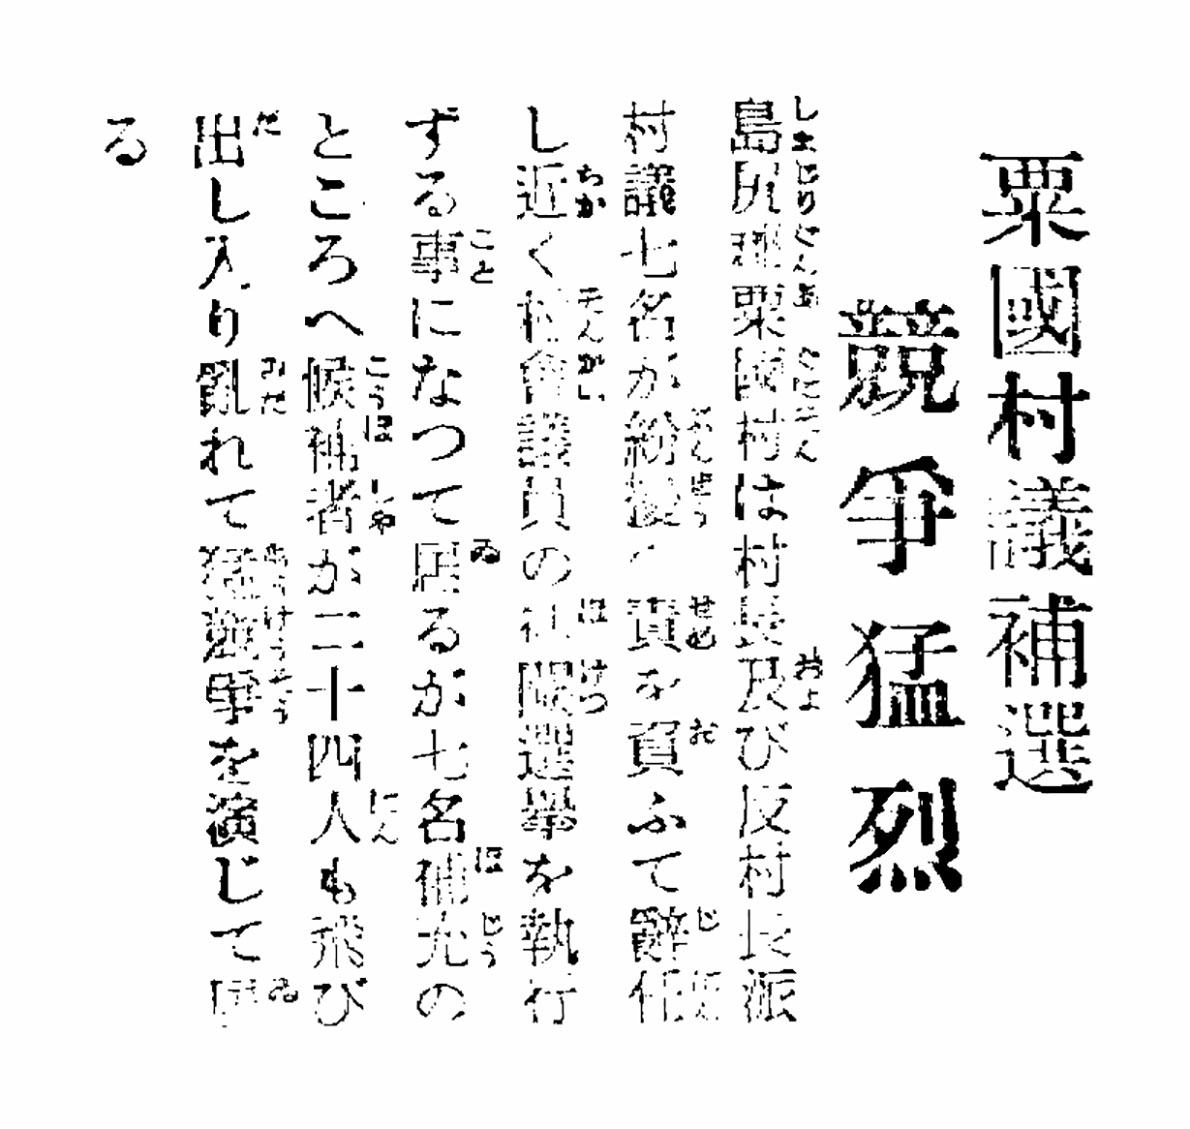 粟國村議補選
競爭猛烈
島尻郡粟國村は村長及び反村長派
村議七名が紛擾の責を負ふて辭任
し近く村會議員の補闕選擧を執行
ずる事になつて居るが七名補充の
ところへ候補者が二十四人も飛び
出し入り亂れて猛競爭を演じて居
る